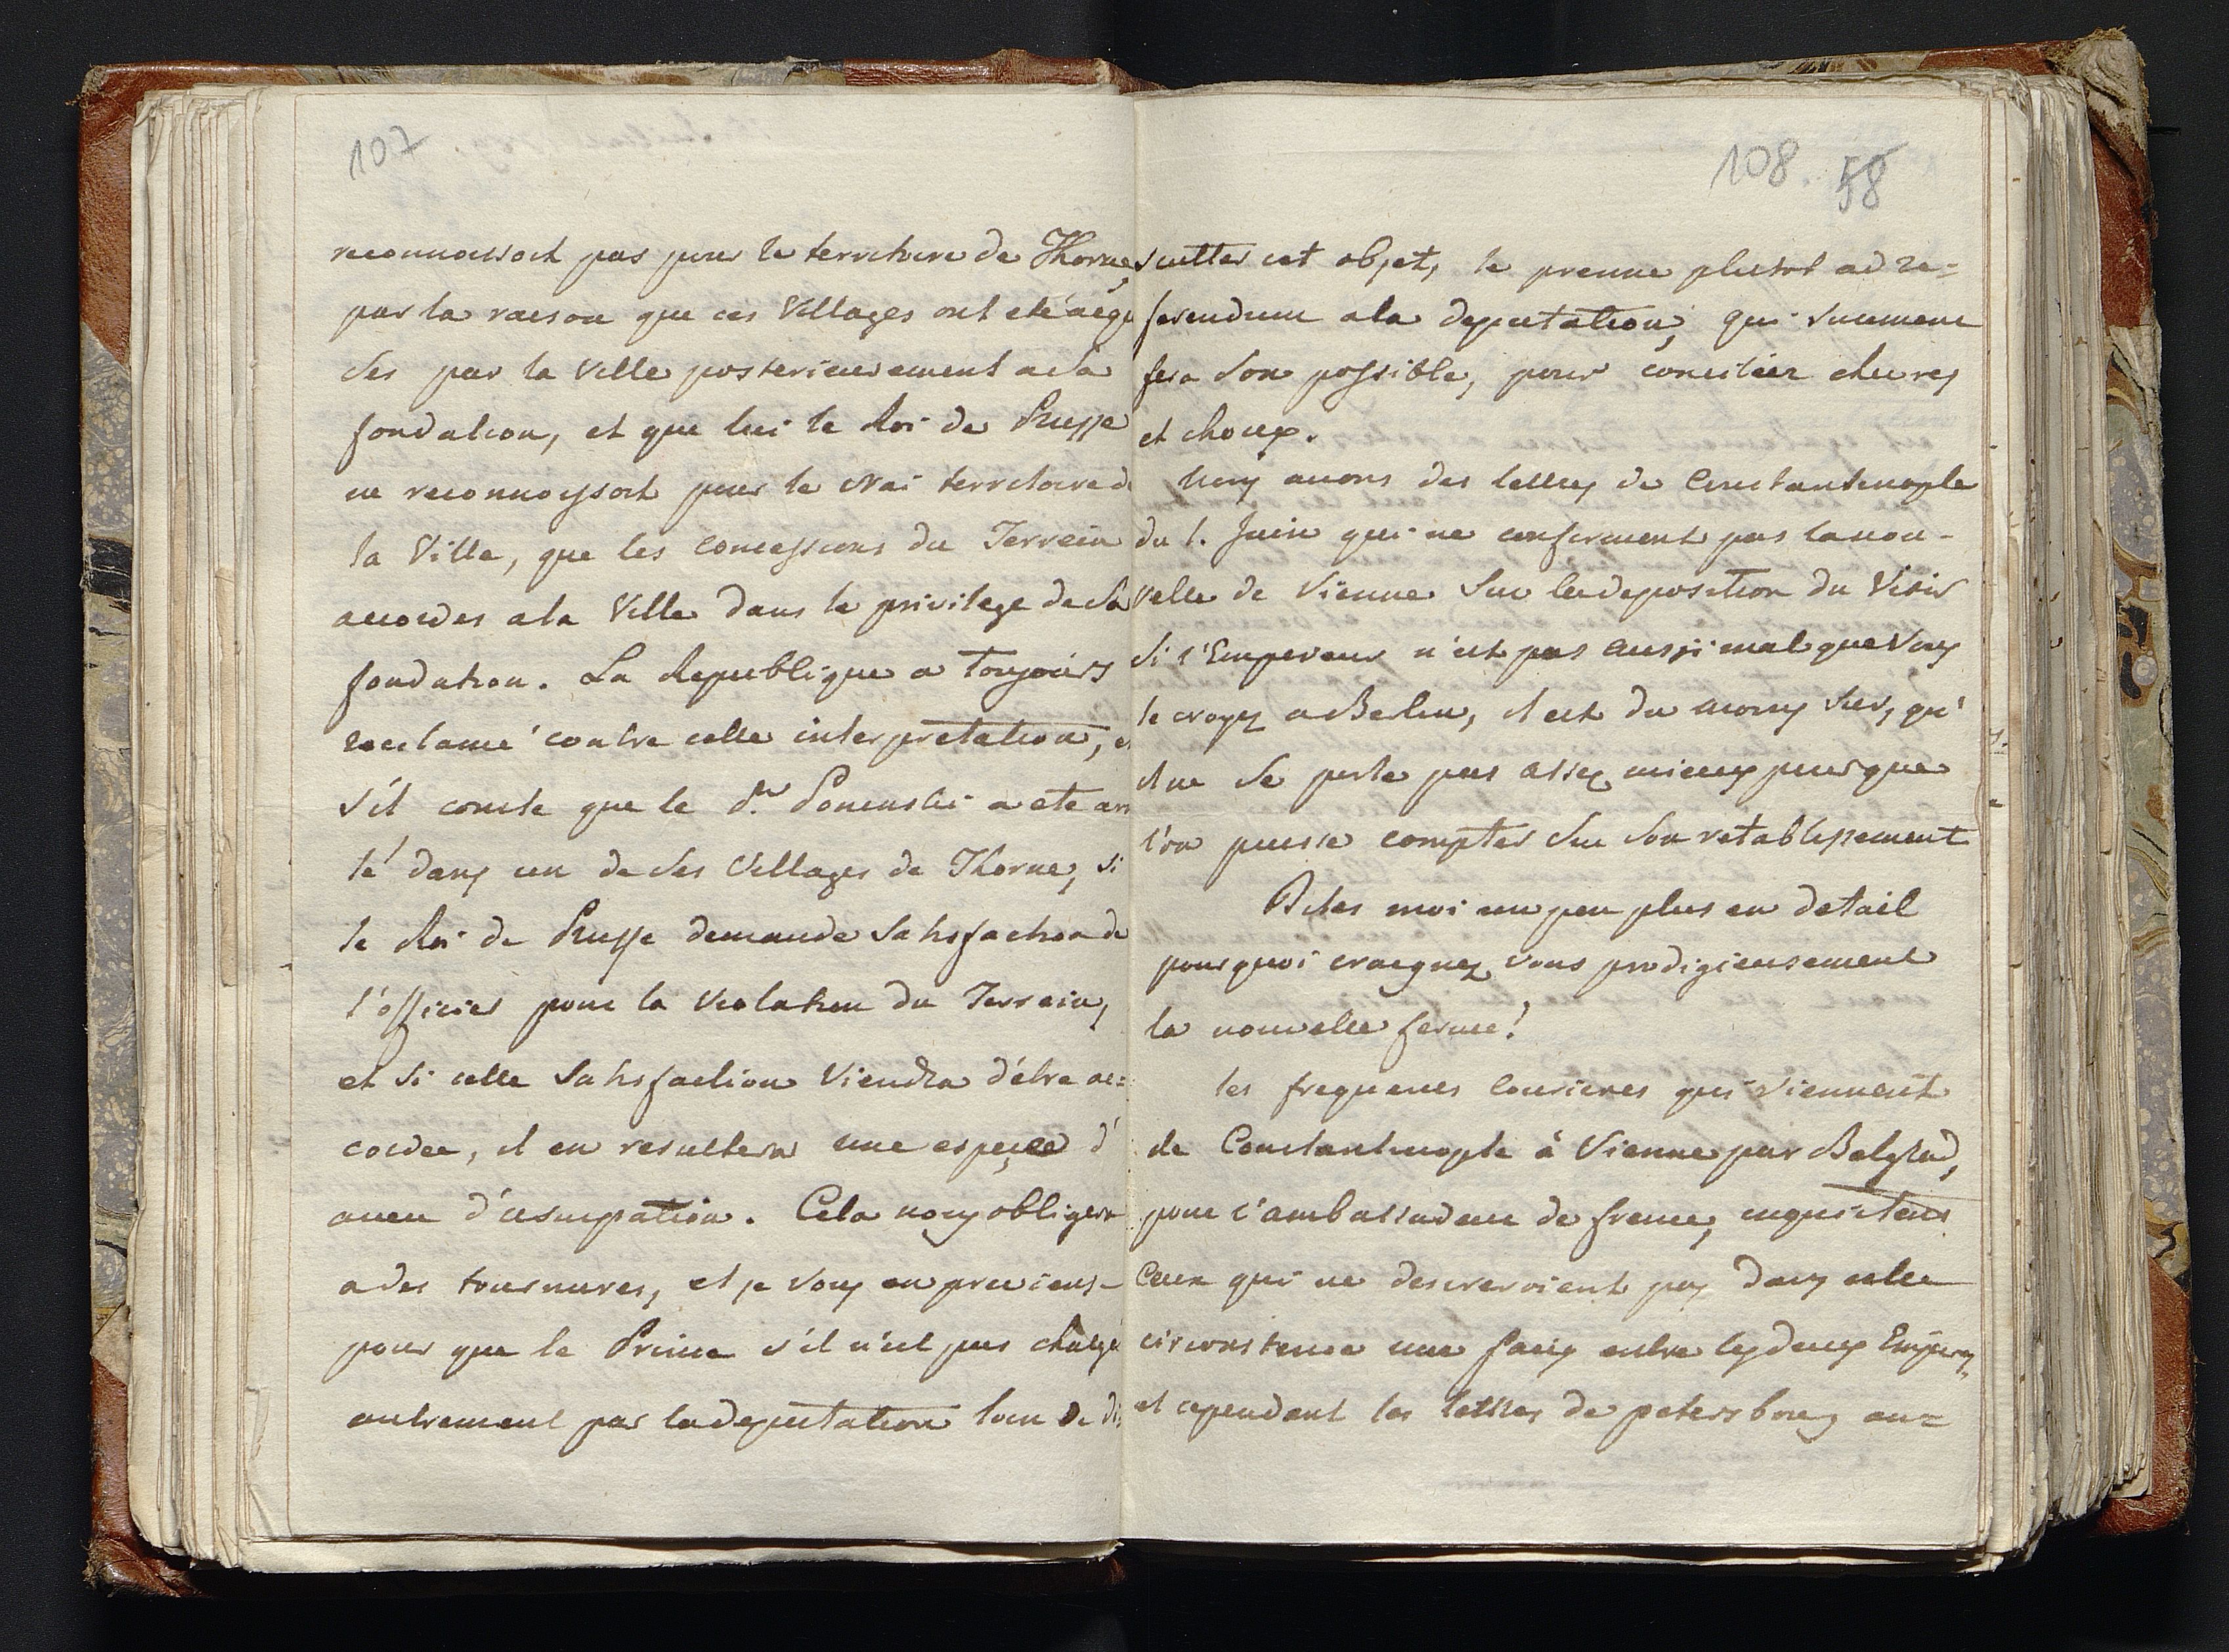 107
reconnoissoit pas pour le territoire de Thorne,
par la raison que ces Villages ont eté aequi
ses par la Ville posterieurement a sa
fondation, et que lui le Roi de Prusse
ne reconnoissoit pour le vrai territoire de
la Ville, que les concessions du Terrein
accordes a la Ville dans le privilege de sa
fondation. La Republique a toujours
reclamé contre cette interpretation, et
s'il conste que le Sr Poninski a ete arre
té dans un de ses Villages de Thorne, si
le Roi de Prusse demande satisfaction de
l'officier pour la violation du Terrein,
et si cette satisfaction viendra d'être ac=
cordee, il en resultera une espece d'
aveu d'usurpation. Cela nous obligera
a des tournures, et je vous en previens-
pour que le Prince s'il n'est pas chargé
autrement par la deputation loin de di
108. 58
scutter cet objet, le prenne plutot ad re=
ferendum a la deputation, qui surement
fera son possible, pour concilier chevres
et choux.
Nous avons des lettres de Constantinople
du 1. Juin qui ne confirment pas la nou-
velle de Vienne sur la deposition du Visir
Si l'Empereur n'est pas aussi mal que vous
le croyez a Berlin, il est du moins sur, qu'
il ne se porte pas assez mieux pour que
l'on puisse compter sur son retablissement
Dites moi un peu plus en detail
pourquoi craignez vous prodigieusement
la nouvelle ferme!
les frequens courieres qui viennent
de Constantinople à Vienne par Belgrad,
pour l'ambassadeur de france, inquietens
Ceux qui ne desireroient pas dans cette
circonstence une paix entre les deux Empires,
et cependant les lettres de petersbourg an=